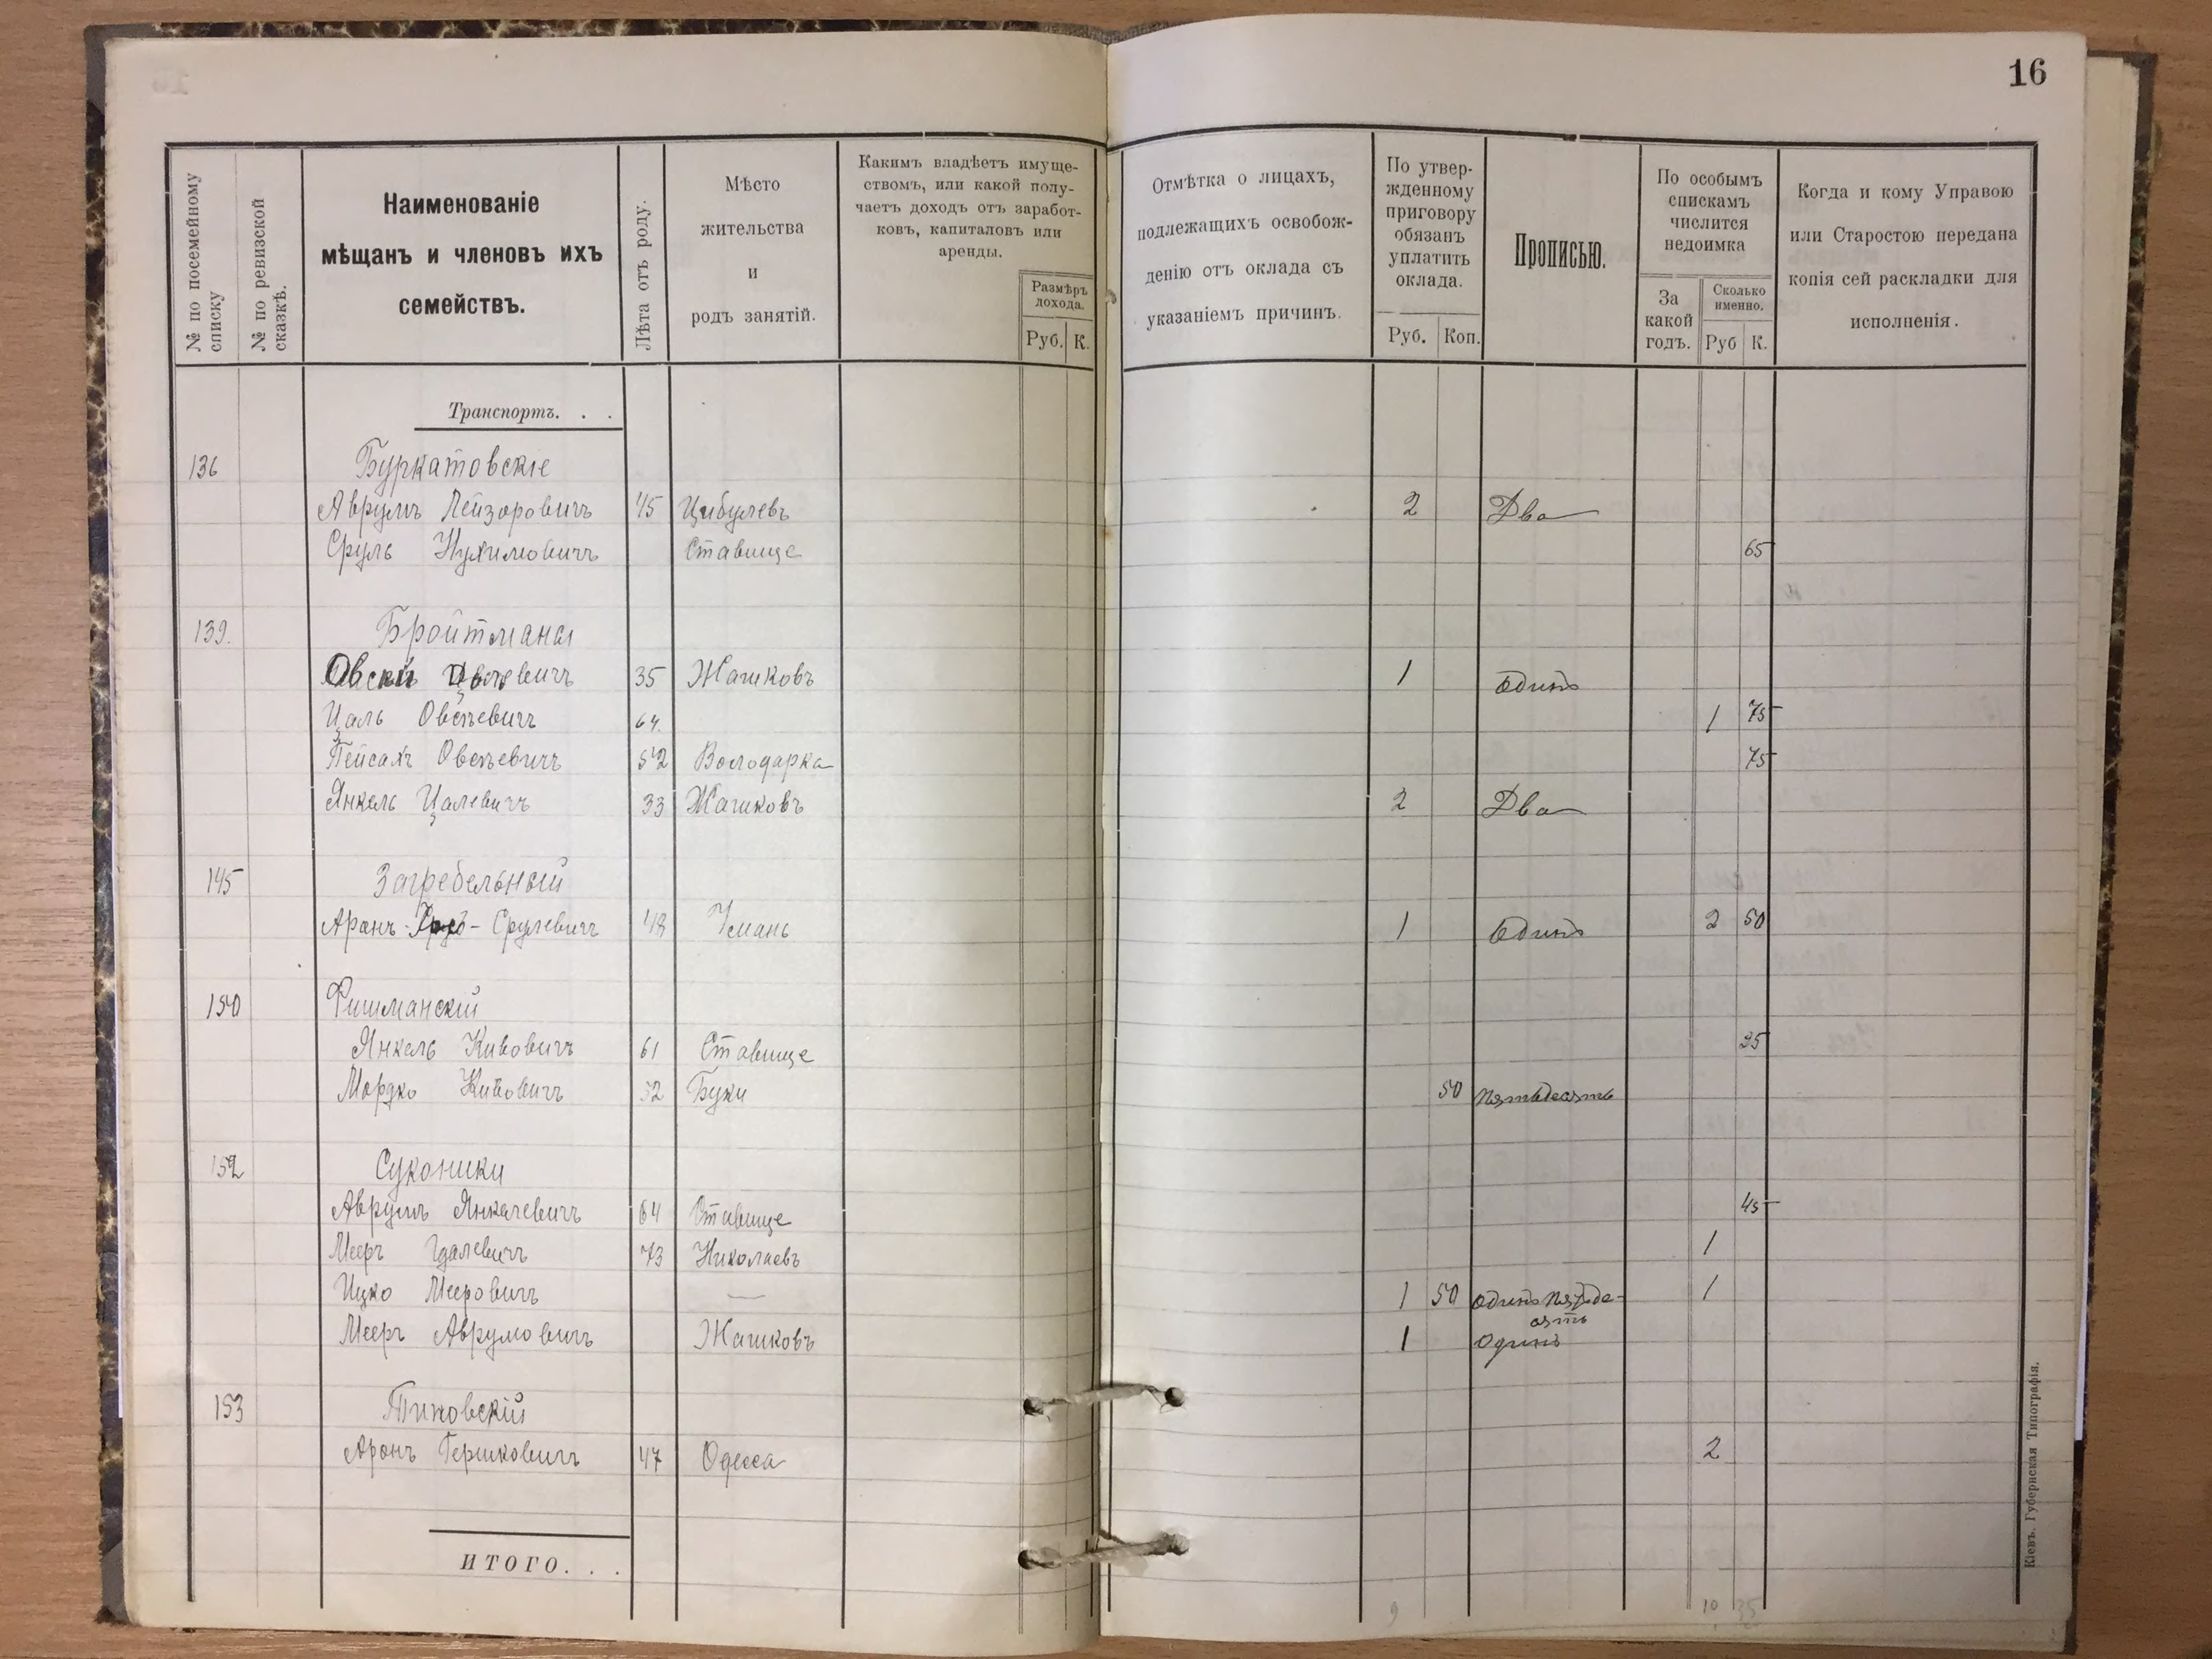 16
№ по посемейному списку
№ по ревизской сказкѣ.
Наименованіе
мѣщанъ и членовъ ихъ
семействъ.
Лѣта отъ роду.
Мѣсто
жительства
и
родъ занятій.
Какимъ владѣетъ имуще-
ствомъ, или какой полу-
чаетъ доходъ отъ заработ-
ковъ, капиталовъ или
аренды.
Размѣръ
дохода.
Руб. К.
Отмѣтка о лицахъ,
подлежащихъ освобож-
денію отъ оклада съ
указаніемъ причинъ.
По утвер-
жденному
приговору
обязанъ
уплатить
оклада.
Руб. Коп.
Прописью.
По особымъ
спискамъ
числится
недоимка
За
какой
годъ.
Сколько
именно.
Руб К.
Когда и кому Управою
или Старостою передана
копія сей раскладки для
исполненія.
Транспортъ. . .
136 Буркатовскіе
Аврумъ Лейзоровичъ 45 Цибулевъ 2 Два
Сруль Нухимовичъ Ставище 65
139. Бройтманы
35 Жашковъ 1 Одинъ
Цаль Овсѣевичъ 64. 1 75
Пейсахъ Овсѣевичъ 52 Володарка 75
Янкель Цалевичъ 33 Жашковъ 2 Два
145 Загребельный
Аронъ- -Срулевичъ 48 Умань 1 Одинъ 2 50
150 Фишманскій
Янкель Кивовичъ 61 Ставище 25
Мордко Кивовичъ 52 Буки 50 пятьдесятъ
152 Суконики
Аврумъ Янкелевичъ 64 Ставище 45
Мееръ Гдалевичъ 73 Николаевъ 1
Ицко Мееровичъ — 1 50 одинъ пятьде- 1
сятъ
Мееръ Аврумовичъ Жашковъ 1 Одинъ
153 Тиновскій
Аронъ Гершковичъ 47 Одесса 2
ИТОГО. . .
9 10 35
Кіевъ. Губернская Типографія.